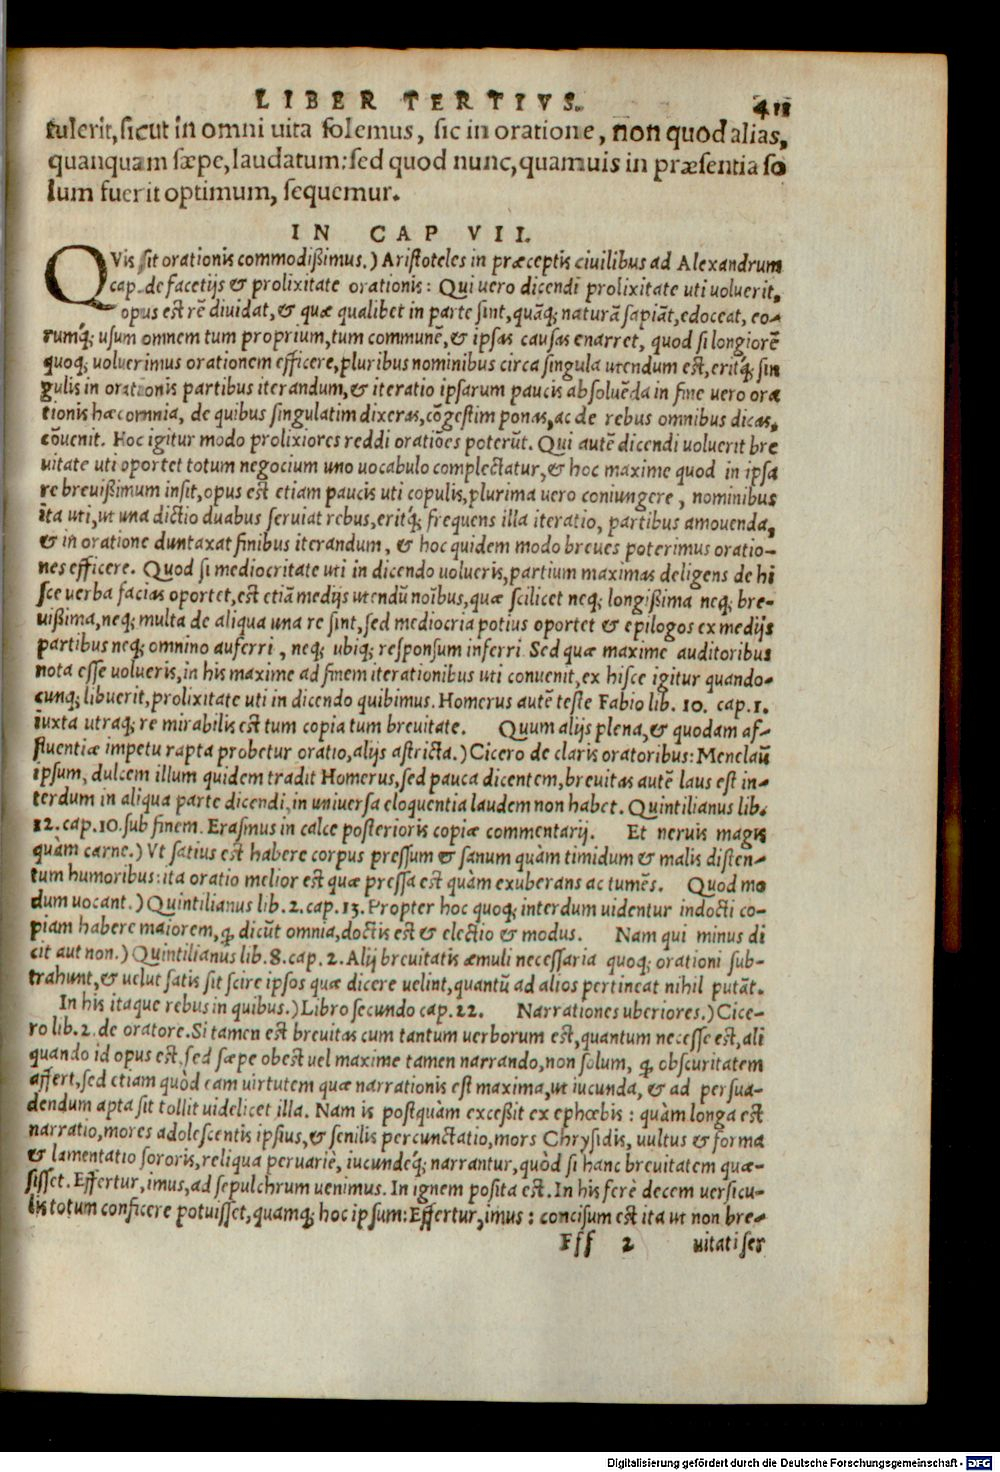 LIBER TERTIVS. 411
tulerit, sicut in omni uita solemus, sic in oratione, non quod alias,
quanquam sæpe, laudatum: sed quod nunc, quamuis in præsentia so
lum fuerit optimum, sequemur.
IN CAP VII.
QVis sit orationis commodißimus.) Aristoteles in præceptis ciuilibus ad Alexandrum
cap. de facetijs & prolixitate orationis: Qui uero dicendi prolixitate uti uoluerit,
opus est rē diuidat, & quæ qualibet in parte sint, quāq; naturā sapiāt, edoceat, eo-
rumq́; usum omnem tum proprium, tum communē, & ipsas causas enarret, quod si longiorē
quoq; uoluerimus orationem efficere, pluribus nominibus circa singula utendum est, eritq́; sin
gulis in orationis partibus iterandum, & iteratio ipsarum paucis absoluēda in fine uero ora
tionis hæc omnia, de quibus singulatim dixeras, cōgestim ponas, ac de rebus omnibus dicas,
cōuenit. Hoc igitur modo prolixiores reddi oratiōes poterūt. Qui autē dicendi uoluerit bre
uitate uti oportet totum negocium uno uocabulo complectatur, & hoc maxime quod in ipsa
re breuißimum insit, opus est etiam paucis uti copulis, plurima uero coniungere, nominibus
ita uti, ut una dictio duabus seruiat rebus, eritq́; frequens illa iteratio, partibus amouenda,
& in oratione duntaxat finibus iterandum, & hoc quidem modo breues poterimus oratio-
nes efficere. Quod si mediocritate uti in dicendo uolueris, partium maximas deligens de hi
sce uerba facias oportet, est etiā medijs utendū noībus, quæ scilicet neq; longißima neq; bre-
uißima, neq; multa de aliqua una re sint, sed mediocria potius oportet & epilogos ex medijs
partibus neq; omnino auferri, neq; ubiq; responsum inferri. Sed quæ maxime auditoribus
nota esse uolueris, in his maxime ad finem iterationibus uti conuenit, ex hisce igitur quando-
cunq; libuerit, prolixitate uti in dicendo quibimus. Homerus autē teste Fabio lib. 10. cap. 1.
iuxta utraq; re mirabilis est tum copia tum breuitate. Quum alijs plena, & quodam af-
fluentiæ impetu rapta probetur oratio, alijs astricta.) Cicero de claris oratoribus: Menelaū
ipsum, dulcem illum quidem tradit Homerus, sed pauca dicentem, breuitas autē laus est in-
terdum in aliqua parte dicendi, in uniuersa eloquentia laudem non habet. Quintilianus lib.
12. cap. 10. sub finem. Erasmus in calce posterioris copiæ commentarij. Et neruis magis
quàm carne.) Vt satius est habere corpus pressum & sanum quàm timidum & malis disten-
tum humoribus: ita oratio melior est quæ pressa est quàm exuberans ac tumēs. Quod mo
dum uocant.) Quintilianus lib. 2. cap. 13. Propter hoc quoq; interdum uidentur indocti co-
piam habere maiorem, ꝙ dicūt omnia, doctis est & electio & modus. Nam qui minus di
cit aut non.) Quintilianus lib. 8. cap. 2. Alij breuitatis æmuli necessaria quoq; orationi sub-
trahunt, & uelut satis sit scire ipsos quæ dicere uelint, quantū ad alios pertineat nihil putāt.
In his itaque rebus in quibus.) Libro secundo cap. 22. Narrationes uberiores.) Cice-
ro lib. 2. de oratore. Si tamen est breuitas cum tantum uerborum est, quantum necesse est, ali
quando id opus est, sed sæpe obest uel maxime tamen narrando, non solum, ꝙ obscuritatem
affert, sed etiam quòd eam uirtutem quæ narrationis est maxima, ut iucunda, & ad persua-
dendum apta sit tollit uidelicet illa. Nam is postquàm exceßit ex ephœbis: quàm longa est
narratio, mores adolescentis ipsius, & senilis percunctatio, mors Chrysidis, uultus & forma
& lamentatio sororis, reliqua peruariè, iucundeq́; narrantur, quòd si hanc breuitatem quæ-
sisset. Effertur, imus, ad sepulchrum uenimus. In ignem posita est. In his ferè decem uersicu-
lis totum conficere potuisset, quamq; hoc ipsum: Effertur, imus: concisum est ita ut non bre-
Fff 2 uitati ser
Digitalisierung gefördert durch die Deutsche Forschungsgemeinschaft - DFG